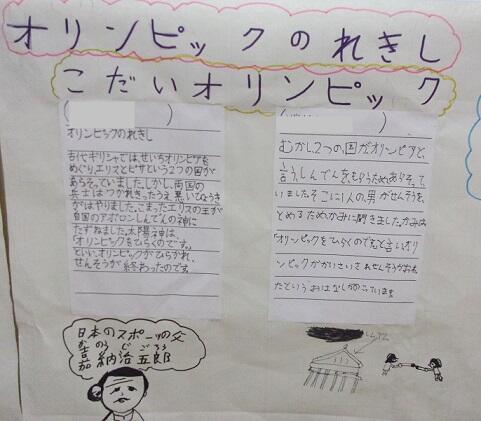 オリンピックのれきし
こだいオリンピック
オリンピックのれきし
古代ギリシャでは、せいちオリンピアを
めぐり、エリスとピサという2つの国が
あらそっていました。しかし、両国の
兵士はつかれきったうえ、悪いびょうき
がはやりました。こまったエリスの王が
自国のアポロンしんでんの神に
たずねました。太陽神は、
「オリンピックをひらくのです。」
といい、オリンピックがひらかれ、
せんそうが終わったのです
むかし、2つの国がオリンピアと
言う、しんでんをもらうため、あらそって
いました。そこに1人の男がせんそうを
とめるため、かみに聞きました。かみは
「オリンピックをひらくのです。」と言い、オリ
ンピックがかいさいされ、せんそうがおわっ
たというおはなしがのこっています
日本のスポーツの父
かのう じごろう
嘉納治五郎